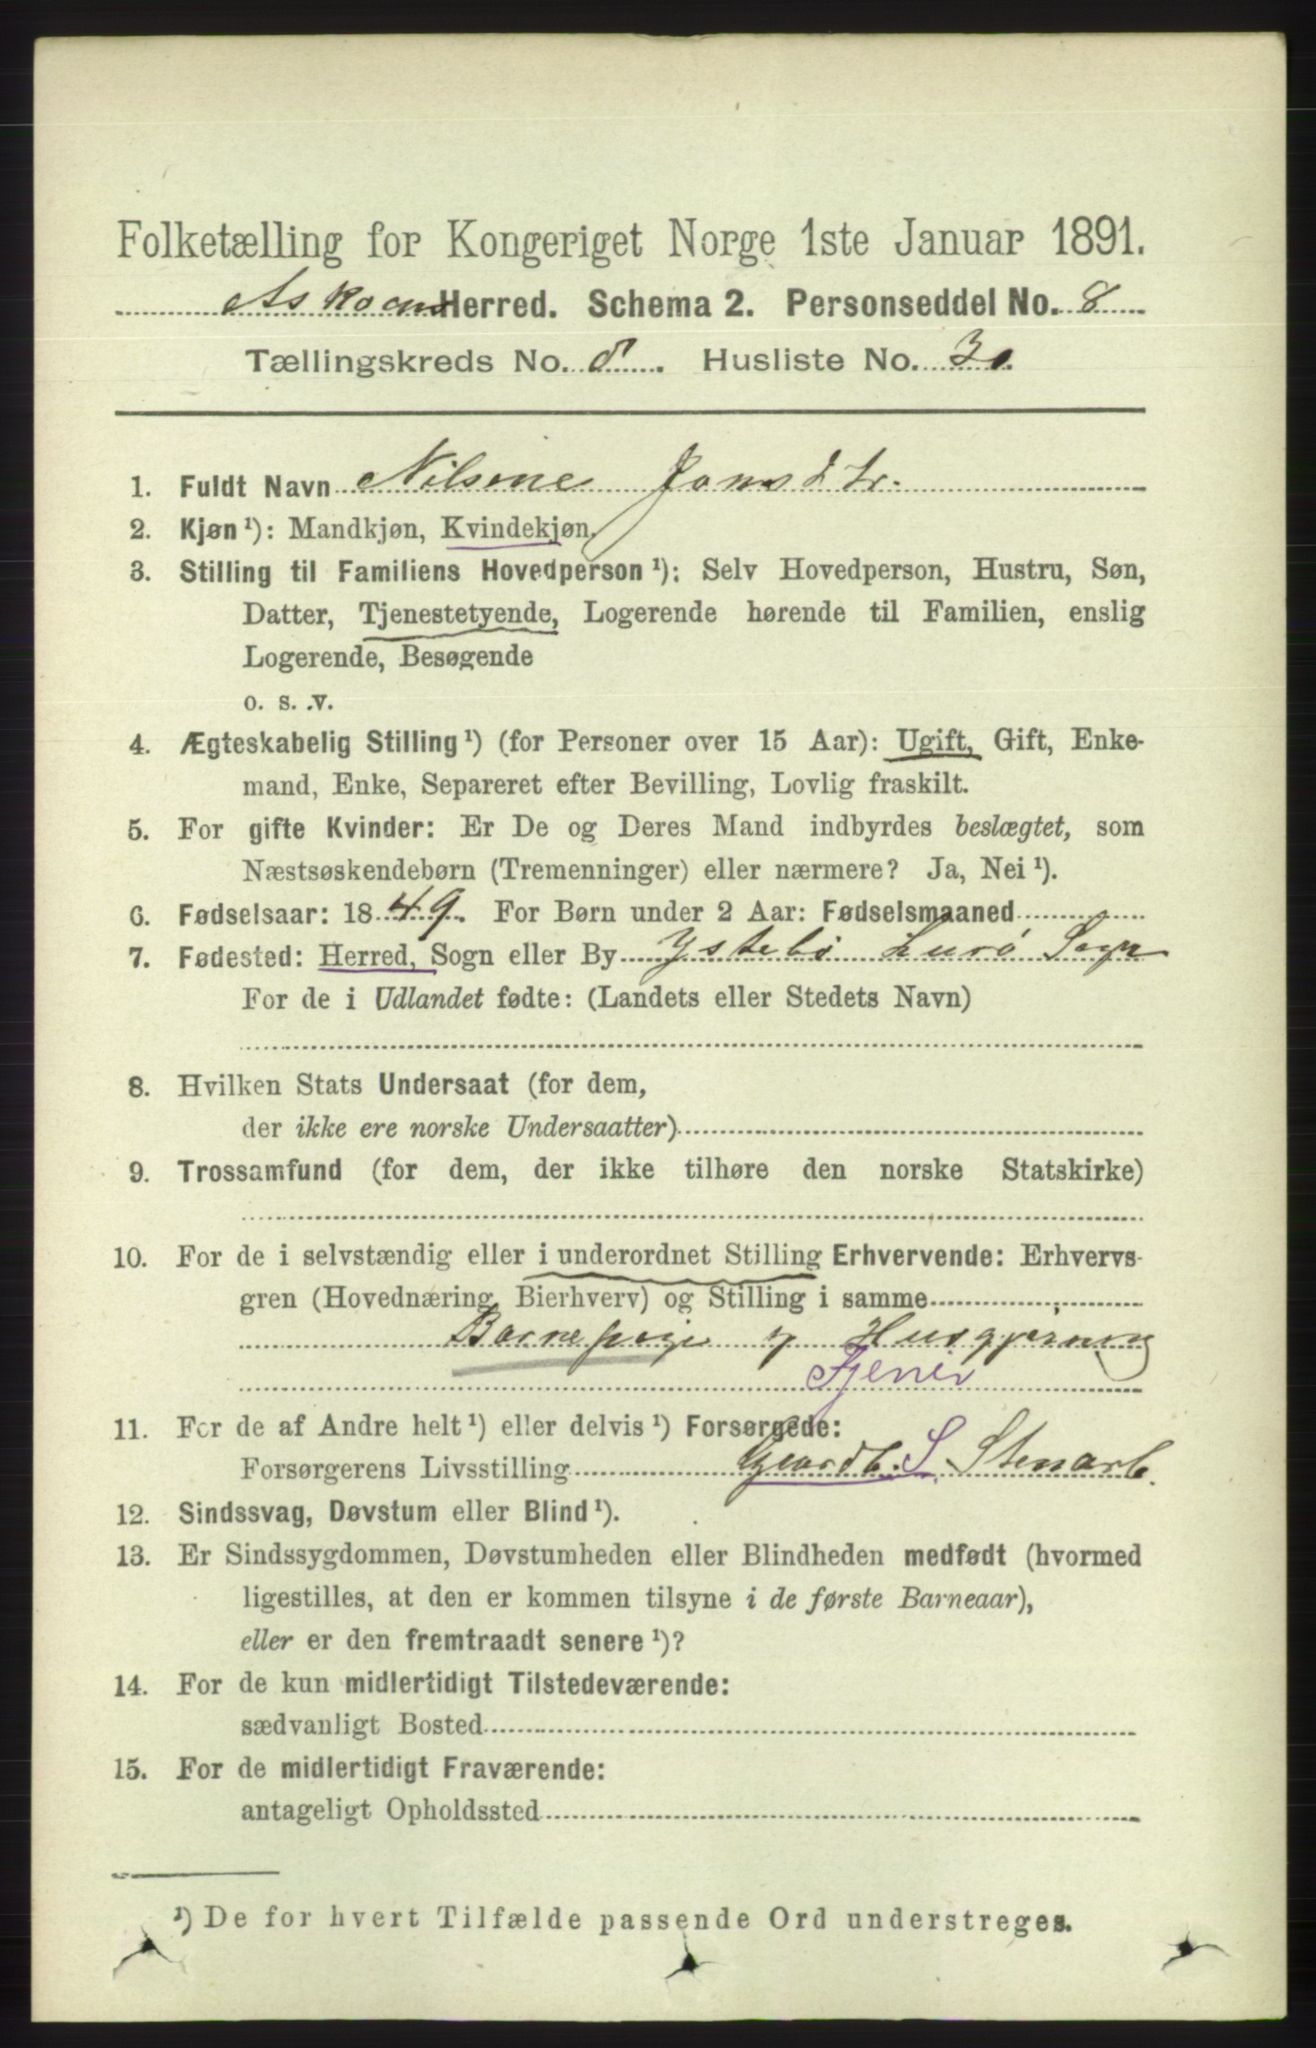 Folketælling for Kongeriget Norge 1ste Januar 1891.
Askoens Herred. Schema 2. Personseddel No. 8
Tællingskreds No. 8. Husliste No. 30.
1. Fuldt Navn Nilsine Jonsdtr.
2. Kjøn ¹): Mandkjøn, Kvindekjøn.
3. Stilling til Familiens Hovedperson ¹): Selv Hovedperson, Hustru, Søn,
Datter, Tjenestetyende, Logerende hørende til Familien, enslig
Logerende, Besøgende
o. s. v.
4. Ægteskabelig Stilling ¹) (for Personer over 15 Aar): Ugift, Gift, Enke-
mand, Enke, Separeret efter Bevilling, Lovlig fraskilt.
5. For gifte Kvinder: Er De og Deres Mand indbyrdes beslægtet, som
Næstsøskendebørn (Tremenninger) eller nærmere? Ja, Nei ¹).
6. Fødselsaar: 1849. For Børn under 2 Aar: Fødselsmaaned
7. Fødested: Herred, Sogn eller By Ystebø Lurø Sogn
For de i Udlandet fødte: (Landets eller Stedets Navn)
8. Hvilken Stats Undersaat (for dem,
der ikke ere norske Undersaatter)
9. Trossamfund (for dem, der ikke tilhøre den norske Statskirke)
10. For de i selvstændig eller i underordnet Stilling Erhvervende: Erhvervs-
gren (Hovednæring, Bierhverv) og Stilling i samme
Barnepige og Husgjerning
Tjener
11. For de af Andre helt ¹) eller delvis ¹) Forsørgede:
Forsørgerens Livsstilling Gaardb. S Stenarb.
12. Sindssvag, Døvstum eller Blind ¹).
13. Er Sindssygdommen, Døvstumheden eller Blindheden medfødt (hvormed
ligestilles, at den er kommen tilsyne i de første Barneaar),
eller er den fremtraadt senere ¹)?
14. For de kun midlertidigt Tilstedeværende:
sædvanligt Bosted
15. For de midlertidigt Fraværende:
antageligt Opholdssted
¹) De for hvert Tilfælde passende Ord understreges.